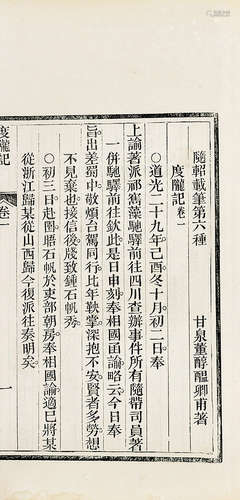 隨軺載筆第六種 甘泉董醇醖卿甫著
度隴記卷一
○道光二十九年己酉冬十月初二日奉
上諭著派祁寯藻馳驛前往四川查辦事件所隨帶司員著
一併馳驛前往欽此是日申刻奉相國函諭略云今日奉
旨出差蜀中敬煩台駕同行比年鞅掌深抱不安賢者多勞想
不見棄也接信後牋致鍾石帆秀
○初三日赴圓晤石帆於吏部朝房奉相國諭適已將某
從浙江歸某從山西歸今復派往奏明矣
度隴記 卷一 一